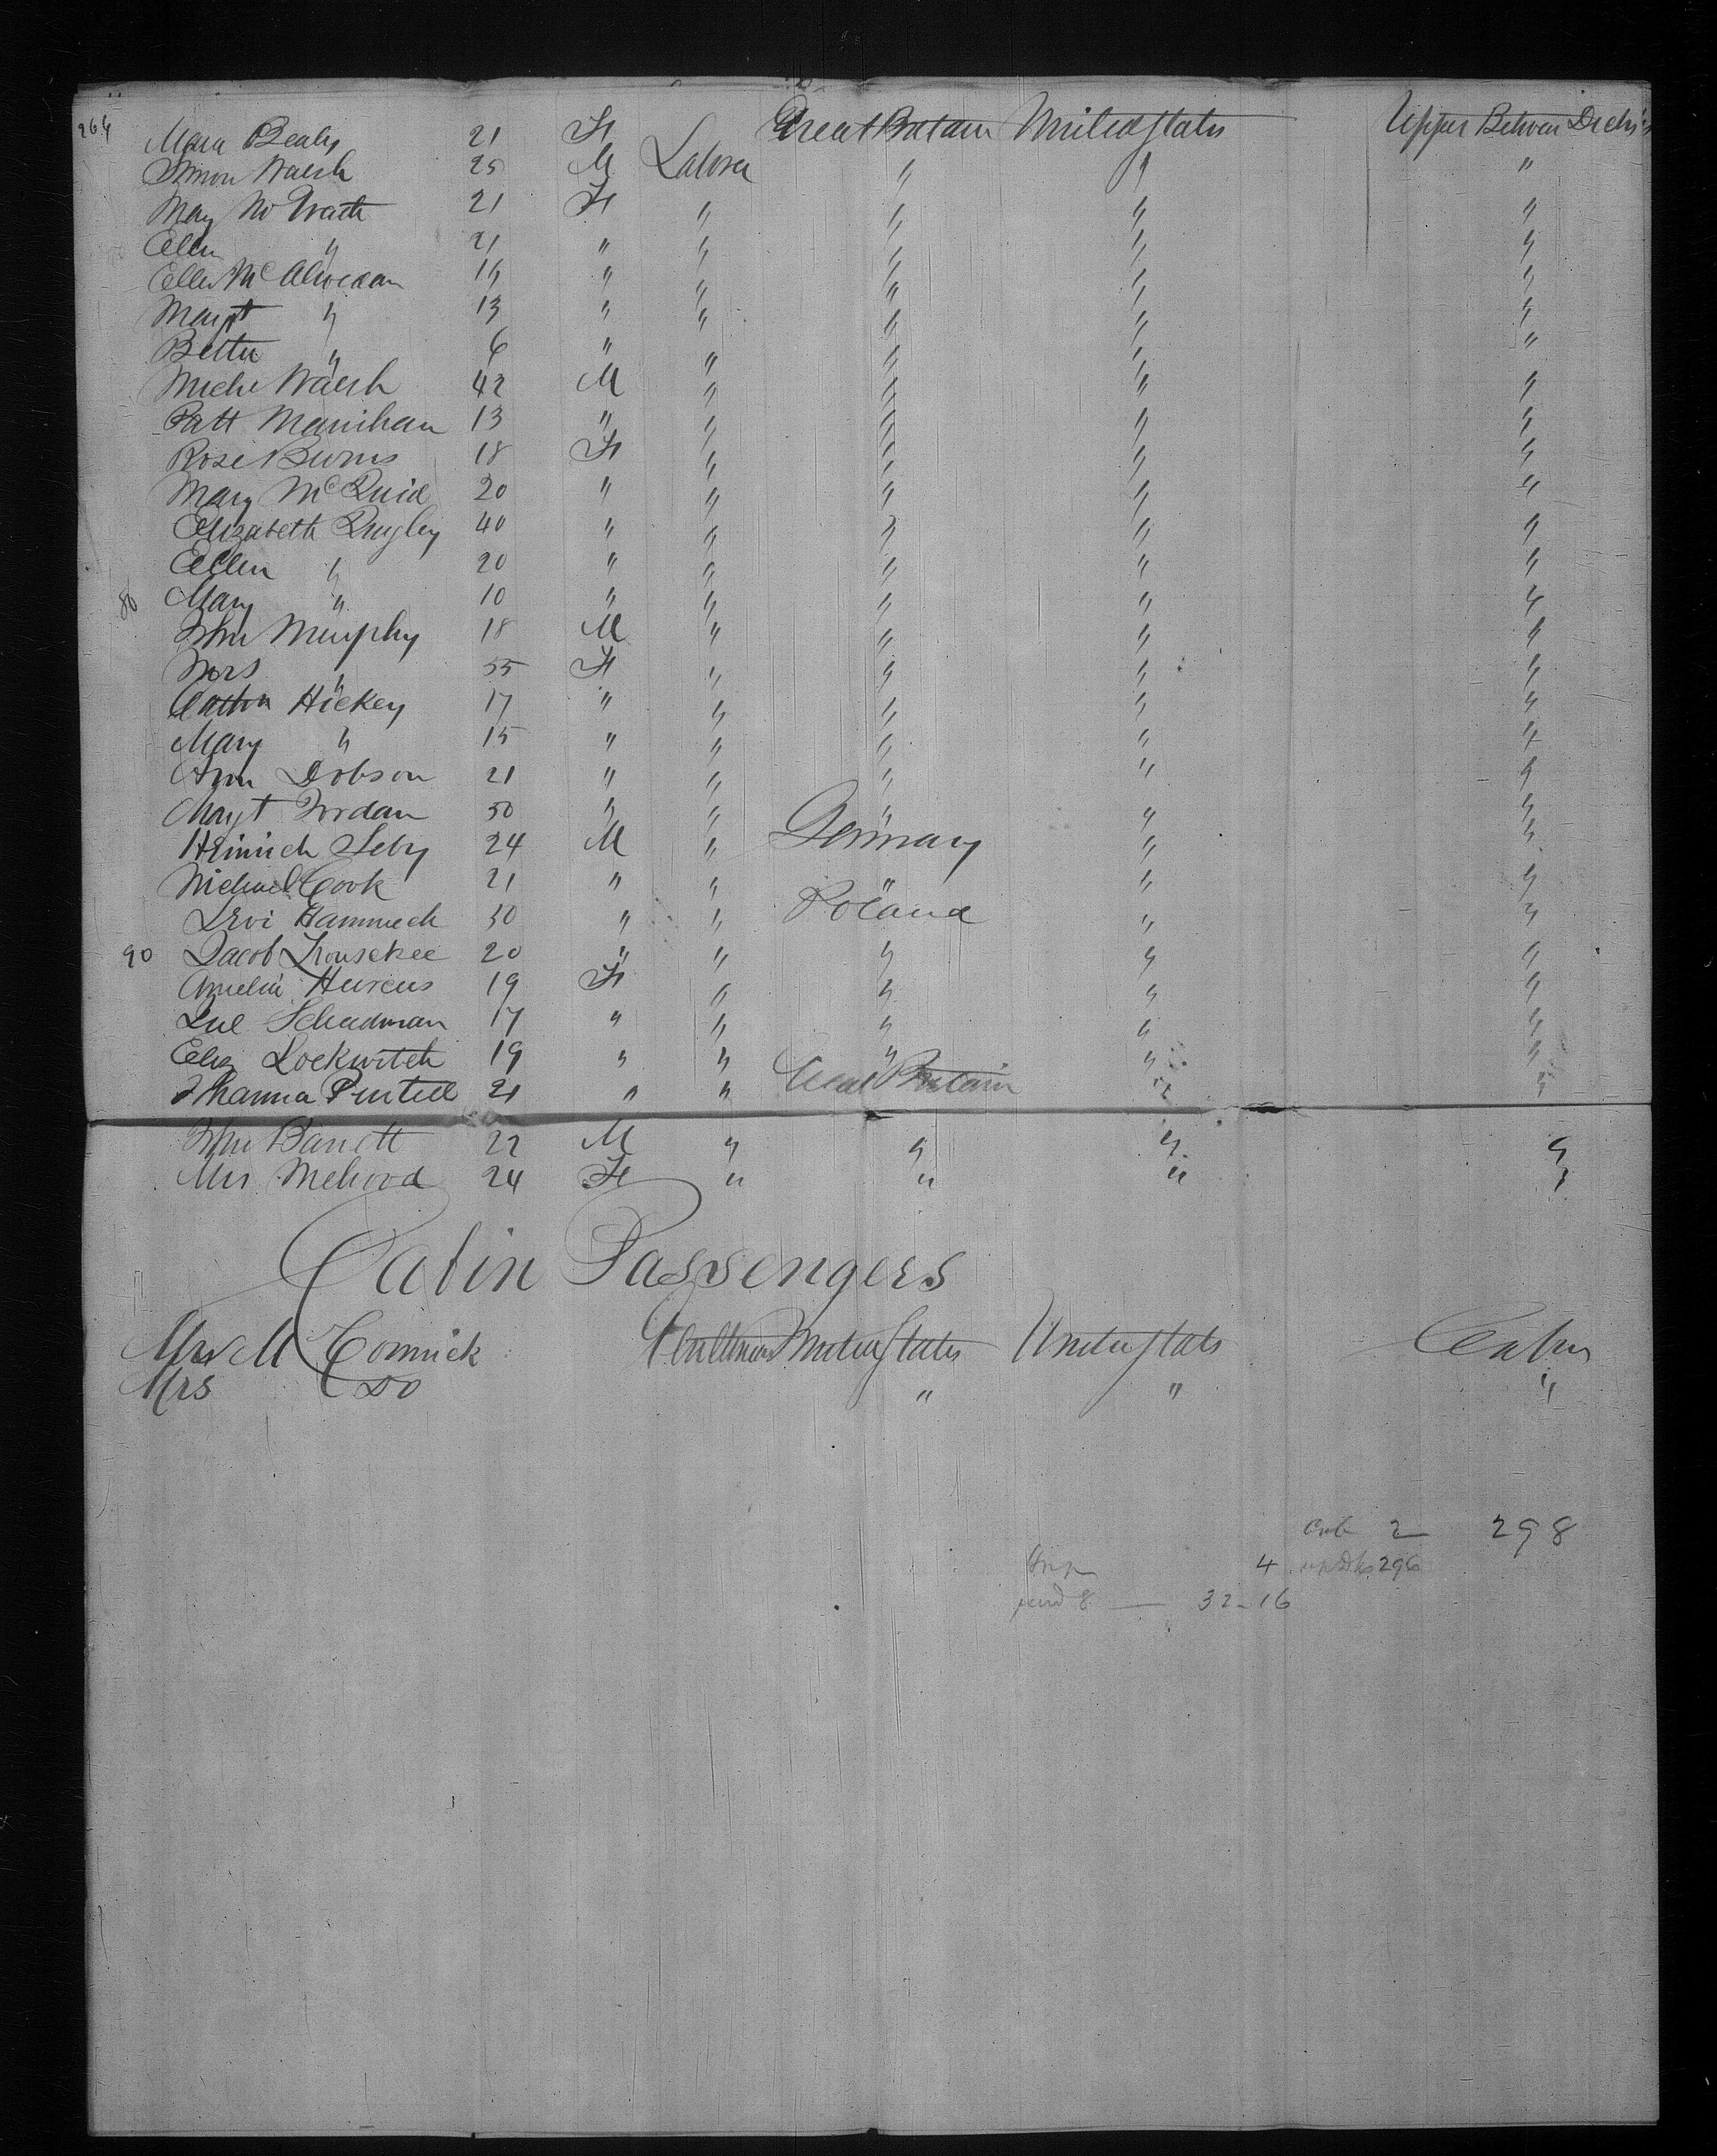 264 Mary Bealy 21 F Great Britain United States Upper Between Decks
Simon Walsh 25 M Labour " " "
Mary McGrath 21 F " " " "
Ellen " 21 " " " " "
Ellen Mc 16 " " " " "
Margt " 13 " " " " "
" 6 " " " " "
Michl Walsh 42 M " " " "
Patt Manihan 13 " " " " "
Rose Burns 18 F " " " "
Mary McQuid 20 " " " " "
Elizabeth Quigley 40 " " " " "
Ellen " 20 " " " " "
80 Mary " 10 " " " " "
John Murphy 18 M " " " "
Mrs " 55 F " " " "
Cathn Hickey 17 " " " " "
Mary " 15 " " " " "
Ann Dobson 21 " " " " "
Margt Jordan 50 " " " " "
Heinrich Seby 24 M " Germany " "
Michael Cook 21 " " " " "
Levi Hammech 30 " " Poland " "
90 Jacob 20 " " " " "
Amelia 19 F " " " "
Schudman 17 " " " " "
Eliz Lockwitch 19 " " " " "
Johanna Purtell 21 " " Great Britain " "
John Barrett 22 M " " " "
Mrs 24 F " " " "
Cabin Passengers
Mr M Cormick United States United States Cabin
Mrs Do " " "
Cab 2 298
4 up Dk 296
8 — 32-16